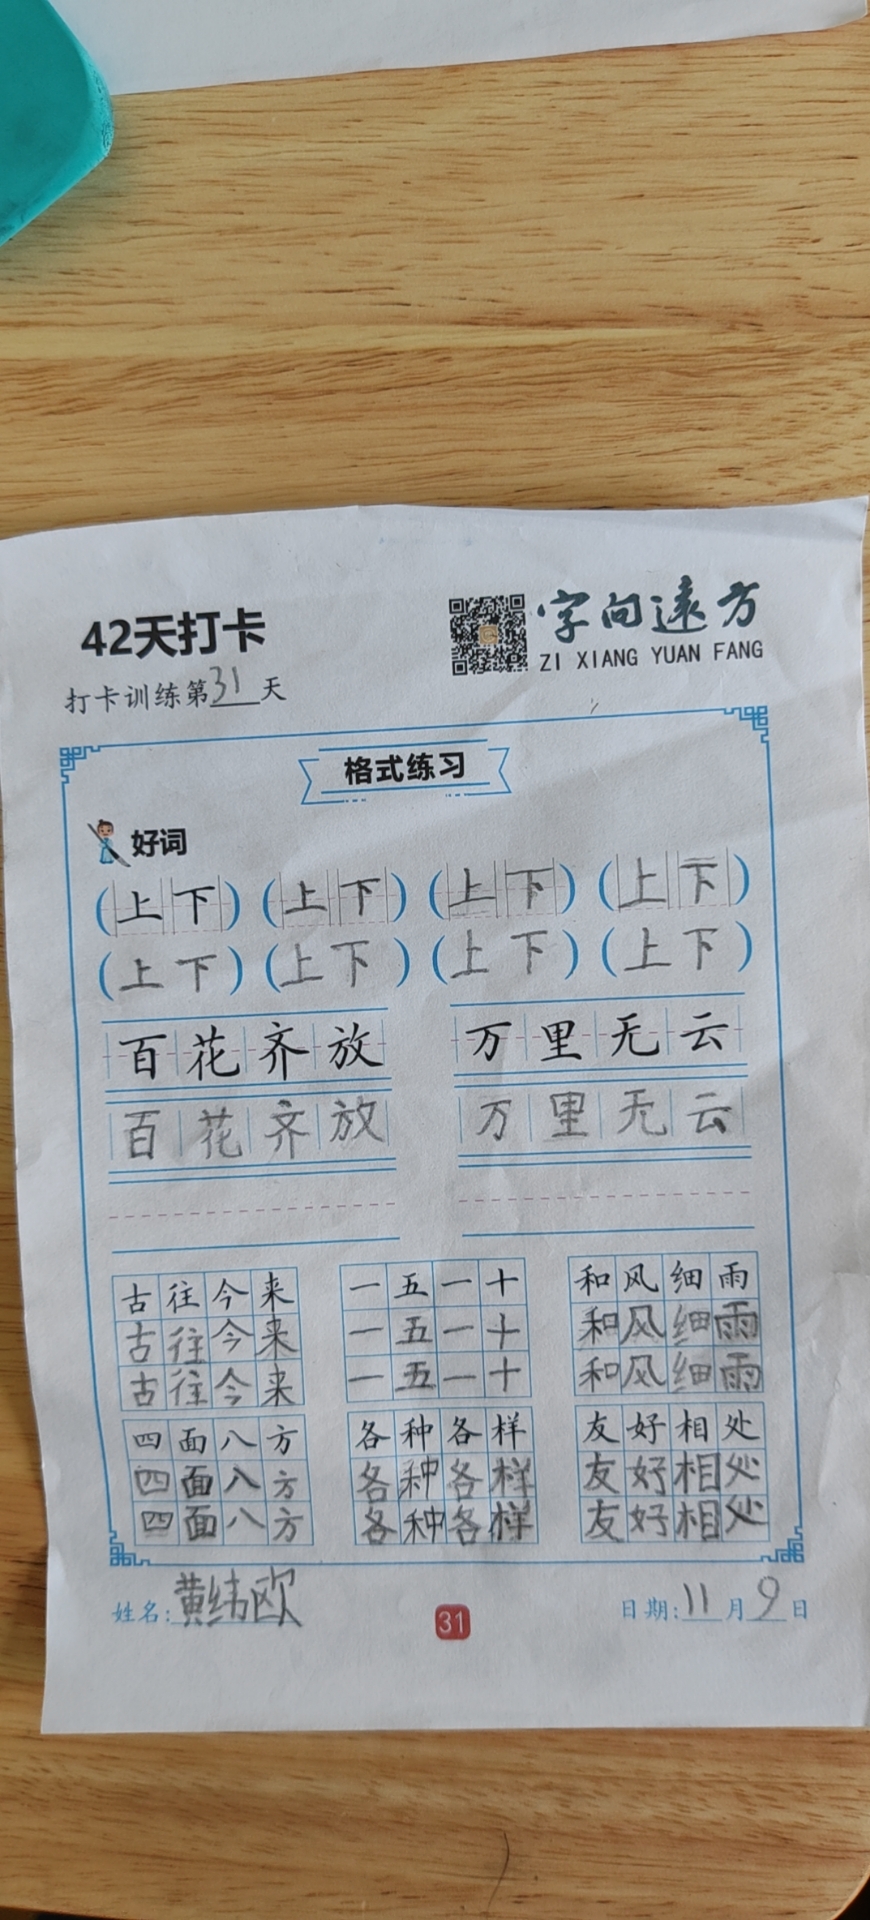 42天打卡
字向远方
ZI XIANG YUAN FANG
打卡训练第31天
格式练习
好词
(上下) (上下) (上下) (上下)
(上下) (上下) (上下) (上下)
百花齐放 万里无云
百花齐放 万里无云
古往今来 一五一十 和风细雨
古往今来 一五一十 和风细雨
古往今来 一五一十 和风细雨
四面八方 各种各样 友好相处
四面八方 各种各样 友好相处
四面八方 各种各样 友好相处
姓名:黄纬欧 31 日期:11月9日